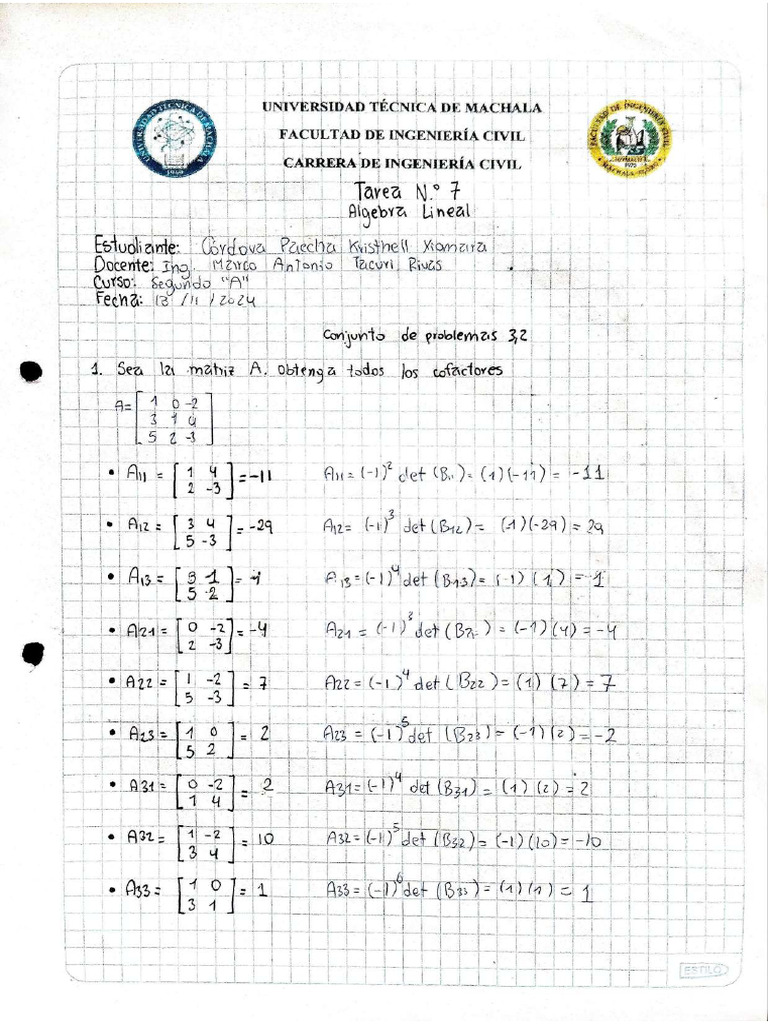 UNIVERSIDAD TÉCNICA DE MACHALA
FACULTAD DE INGENIERÍA CIVIL
CARRERA DE INGENIERÍA CIVIL
Tarea N.° 7
Algebra Lineal
Estudiante: Córdova Paccha Kristhell Xiomara
Docente: Ing. Marco Antonio Tacuri Rivas
Curso: Segundo "A"
Fecha: 13/11/2024
Conjunto de problemas 3,2
1. Sea la matriz A. Obtenga todos los cofactores
A= [ 1 0 -2
3 1 4
5 2 -3 ]
• A11 = [ 1 4 / 2 -3 ] = -11 A11 = (-1)² det (B11) = (1)(-11) = -11
• A12 = [ 3 4 / 5 -3 ] = -29 A12 = (-1)³ det (B12) = (1)(-29) = 29
• A13 = [ 3 1 / 5 2 ] = 1 A13 = (-1)⁴ det (B13) = (-1) (1) = 1
• A21 = [ 0 -2 / 2 -3 ] = -4 A21 = (-1)³ det (B21) = (-1) (4) = -4
• A22 = [ 1 -2 / 5 -3 ] = 7 A22 = (-1)⁴ det (B22) = (1) (7) = 7
• A23 = [ 1 0 / 5 2 ] = 2 A23 = (-1)⁵ det (B23) = (-1) (2) = -2
• A31 = [ 0 -2 / 1 4 ] = 2 A31 = (-1)⁴ det (B31) = (1) (2) = 2
• A32 = [ 1 -2 / 3 4 ] = 10 A32 = (-1)⁵ det (B32) = (-1) (10) = -10
• A33 = [ 1 0 / 3 1 ] = 1 A33 = (-1)⁶ det (B33) = (1) (1) = 1
ESTILO